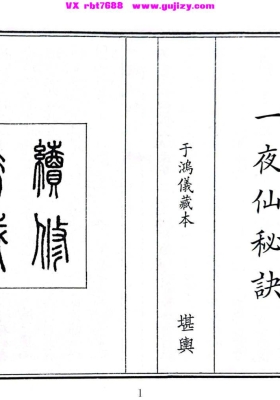 VX rbt7688    www.gujizy.com
一夜仙秘訣
于鴻儀藏本
堪輿
續修
1